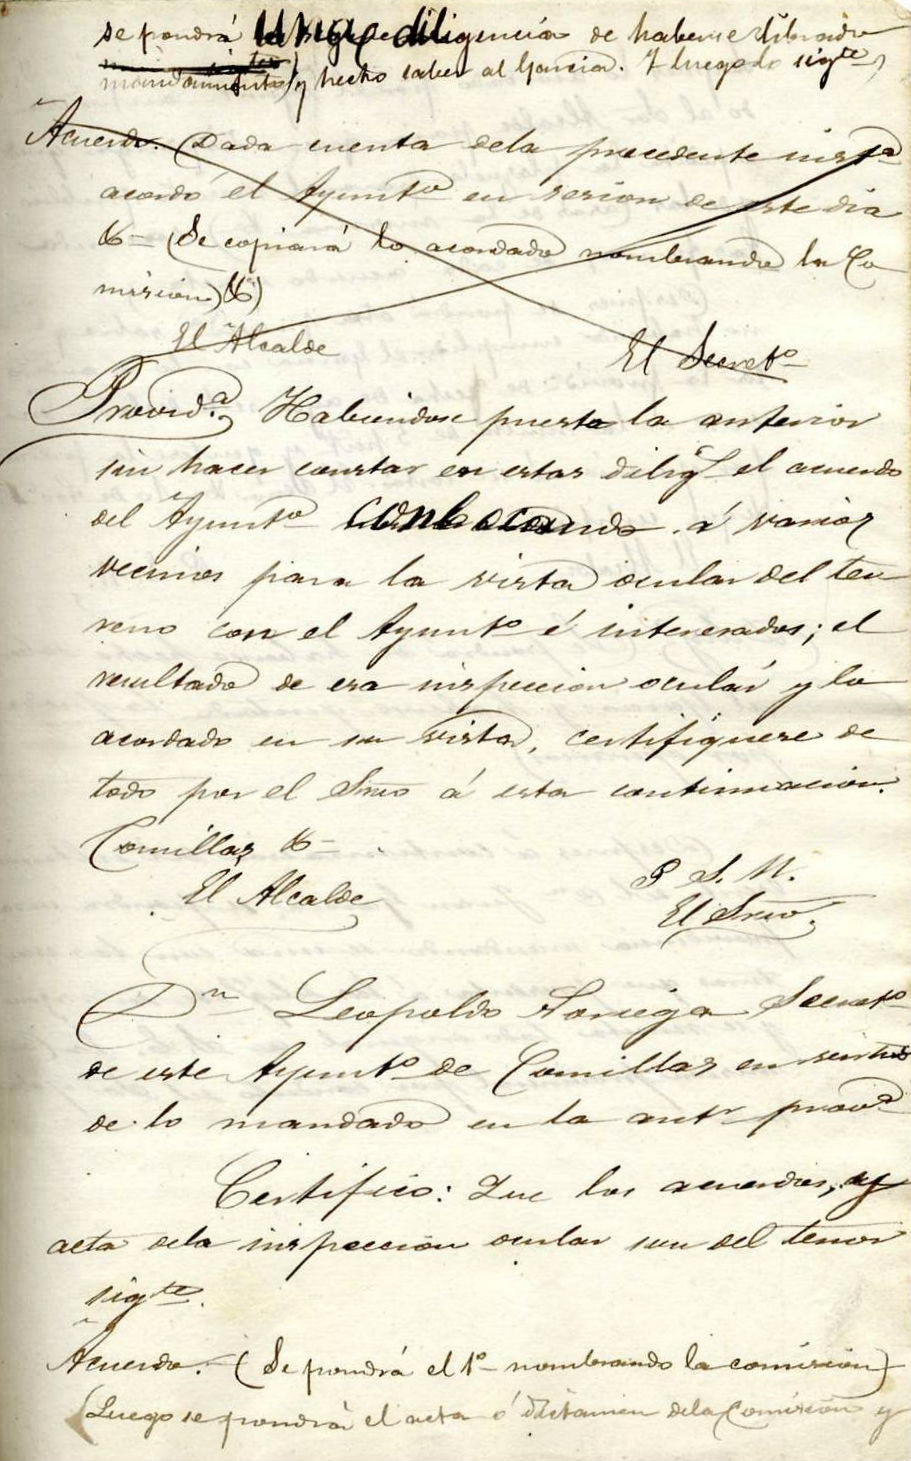 se pondrá una diligencia de haberse librado
mandamientos y hecho saber al Garcia. Y luego lo sigte
Acuerdo. (Dada cuenta dela precedente instª
acordó el Ayuntº en sesion de este dia
&= (Se copiará lo acordado nombrando la Co
mision) (&)
El Alcalde
El Secretº
Provid.ª Habiendose puesto la anterior
sin hacer constar en estas diligs el acuerdo
del Ayuntº conbocando á varios
vecinos para la vista ocular del ter
reno con el Ayuntº é interesados; el
resultado de esa inspeccion ocular y lo
acordado en su vista, certifiquese de
todo por el Srio á esta continuacion.
Comillas &=
El Alcalde
P. S. M.
El Srio.
Dn Leopoldo Noriega Secretº
de este Ayuntº de Comillas en
de lo mandado en la antr provª
Certifico: Que los acuerdos, y
acta dela inspeccion ocular son del tenor
sigte.
Acuerdo. (Se pondrá el 1º nombrando la comision)
(Luego se pondrá el acta ó dictamen dela Comision y